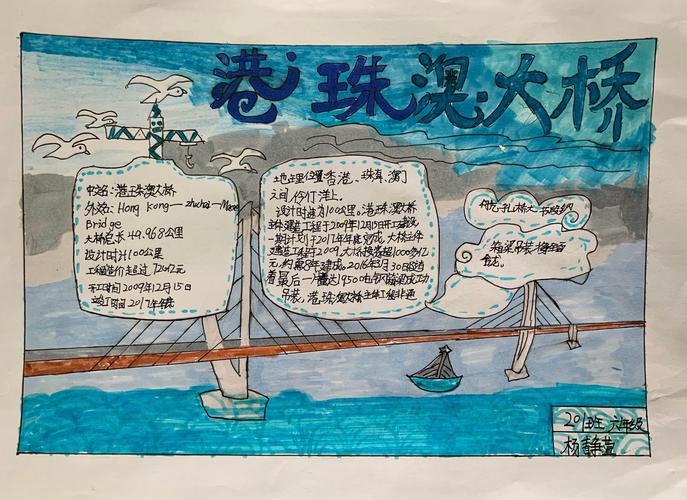 港珠澳大桥
中文名：港珠澳大桥
外文名：Hong Kong—zhuhai—Macao
Bridge
大桥总长 49.968公里
设计时计100公里
工程造价超过 720亿元
开工时间 2009年12月15日
竣工时间 2017年年底
地理位置香港、珠海、澳门
之间伶仃洋上。
设计时速为100公里。港珠澳大桥
主体建造工程于2009年12月15日开工建设
一期计划于2017年年底完成，大桥主体
建造工程于2009,大桥投资超1000多亿
元，约需8年建成。2016年3月30日随
着最后一
吊装，港珠澳大桥主体工程非通
20班 六年级
杨静萱